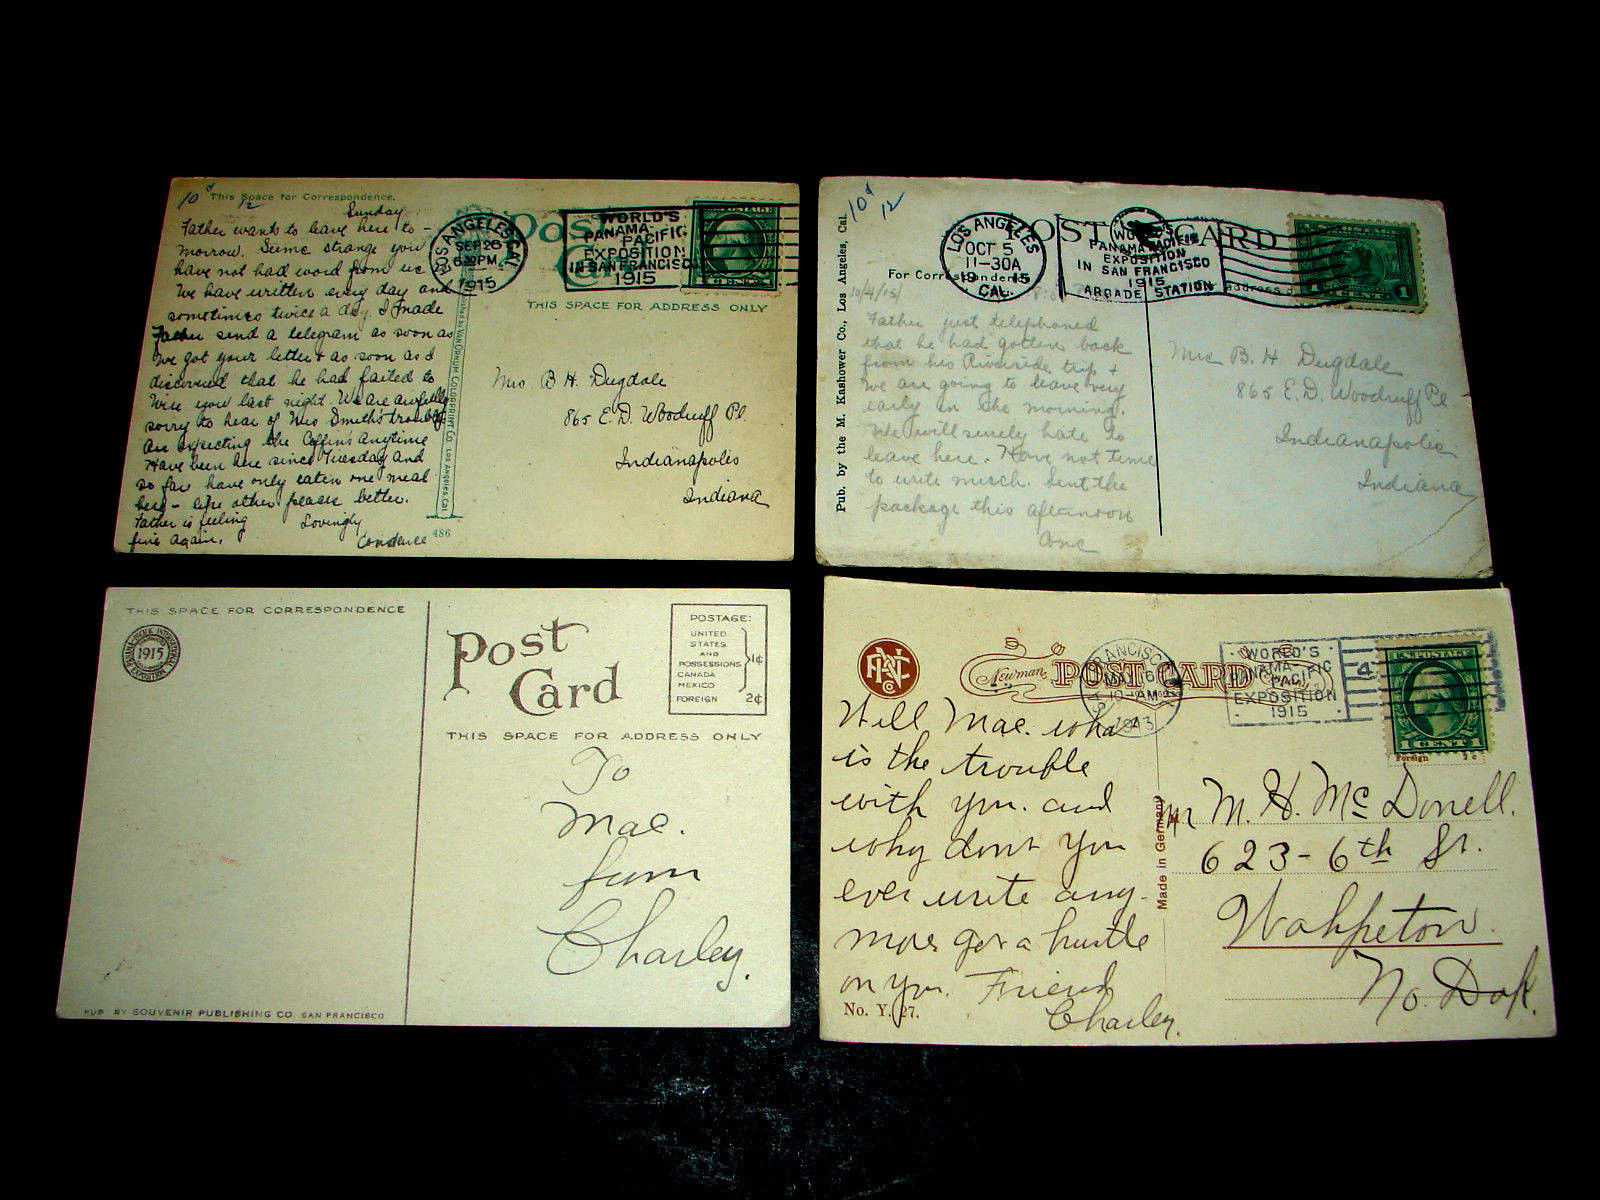 10¢
12
This Space for Correspondence.
Sunday
Father wants to leave here to-
morrow. Seems strange you
have not had word from us
We have written every day and
sometimes twice a day. I made
Father send a telegram as soon as
we got your letter & as soon as I
discovered that he had failed to
wire you last night. We are awfully
sorry to hear of Mrs Smith's trouble
Are expecting the Coffin's anytime
Have been here since Tuesday and
so far have only eaten one meal
here - like other places better.
Father is feeling Lovingly
fine again.
486
Post
Card
LOS ANGELES, CAL.
SEP 26
6 30 PM
1915
WORLD'S
PANAMA-
PACIFIC
EXPOSITION
IN SAN FRANCISCO
1915
THIS SPACE FOR ADDRESS ONLY
VAN ORNUM COLORPRINT CO. LOS ANGELES, CAL.
Mrs B H. Dugdale
865 E. D. Woodruff Pl.
Indianapolis
Indiana
10¢
12
Pub. by the M. Kashower Co., Los Angeles, Cal.
POST CARD
For Correspondence
LOS ANGELES
OCT 5
11-30A
19 15
CAL.
WORLD'S
PANAMA PACIFIC
EXPOSITION
IN SAN FRANCISCO
1915
ARCADE STATION
1 CENT 1
10/4/15
Father just telephoned
that he had gotten back
from his Riverside trip &
we are going to leave very
early in the morning.
We will surely hate to
leave here. Have not time
to write much. Sent the
package this afternoon
Mrs B. H Dugdale
865 E. D. Woodruff Pl
Indianapolis
Indiana
THIS SPACE FOR CORRESPONDENCE
PANAMA-PACIFIC INTERNATIONAL EXPOSITION
1915
Post
Card
POSTAGE:
UNITED
STATES
AND
POSSESSIONS 1¢
CANADA
MEXICO
FOREIGN 2¢
THIS SPACE FOR ADDRESS ONLY
To
Mac.
from
Charley.
PUB BY SOUVENIR PUBLISHING CO. SAN FRANCISCO
Newman POST CARD
FRANCISCO
MAY 6
10-AM
1913
WORLD'S
PANAMA-PACIFIC
EXPOSITION
1915
4
U.S. POSTAGE
1 CENT 1
Foreign 2c
Well Mac. what
is the trouble
with you. and
why dont you
ever write any-
more get a hustle
on you. Friend
Charley.
No. Y. 27.
Made in Germany
Mr M. H. McDonell.
623-6th St.
Wahpeton
No. Dak.